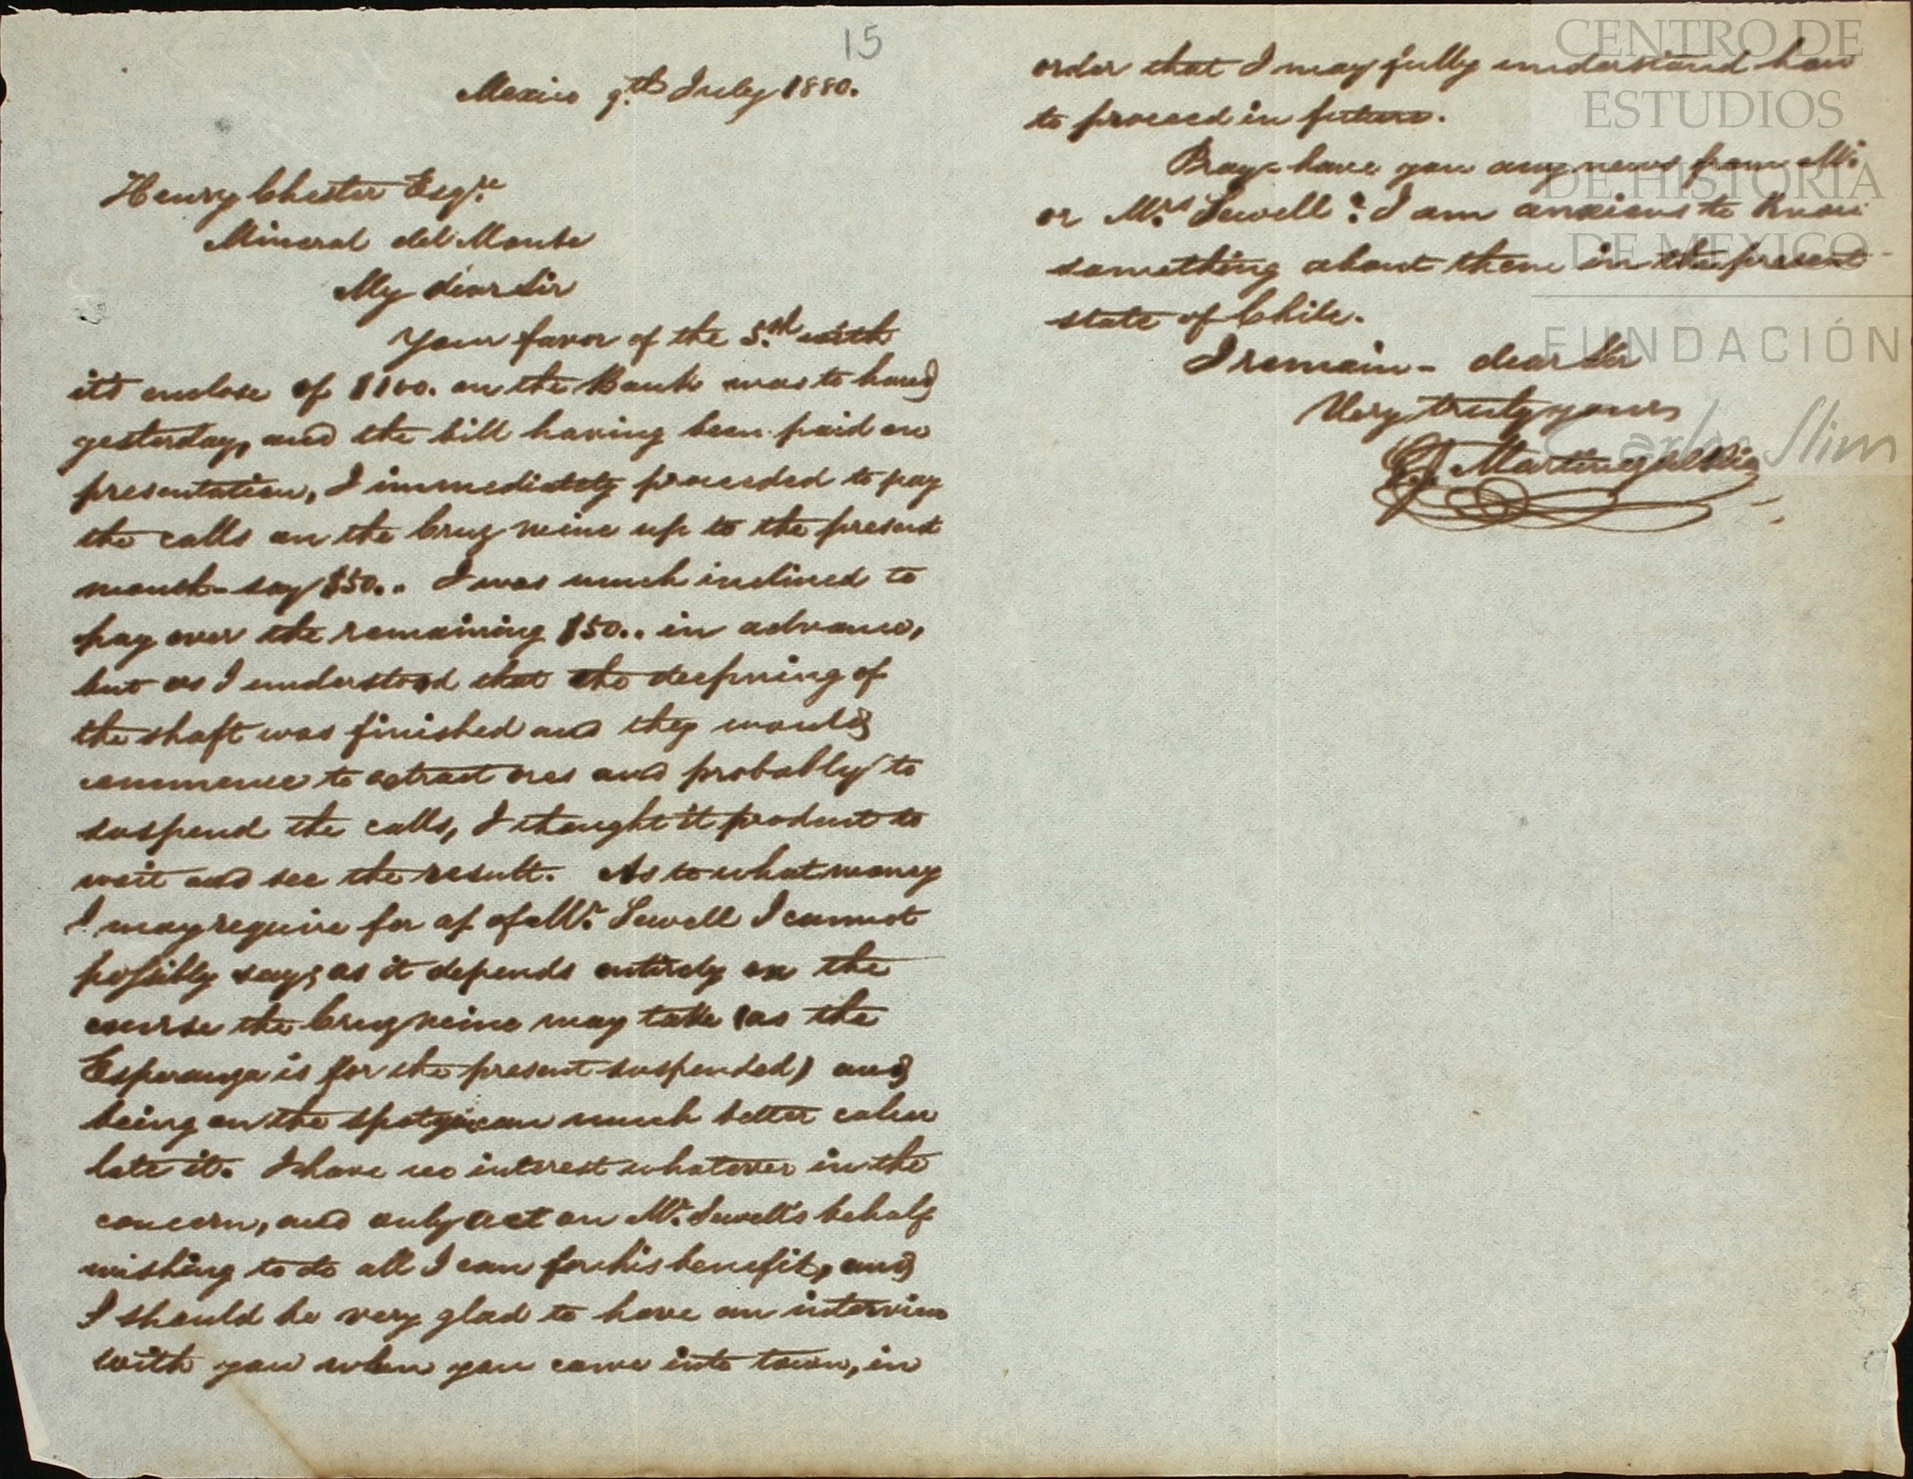 15
Mexico 9th July 1880.
Henry Chester Esqre
Mineral del Monte
My dear Sir
Your favor of the 5th with
it's enclose of $100. on the Bank was to hand
yesterday, and the bill having been paid on
presentation, I immediately proceeded to pay
the calls on the Cruz mine up to the present
month - say $50.. I was much inclined to
pay over the remaining $50.. in advance,
but as I understood that the deepning of
the shaft was finished and they would
commence to extract ores and probably to
suspend the calls, I thought it prudent to
wait and see the result. As to what money
I may require for a/c of Mr. Sewell I cannot
possibly say; as it depends entirely on the
course the Cruz mine may take (as the
Esperanza is for the present suspended) and
being on the spot you can much better calcu
late it. I have no interest whatever in the
concern, and only act on Mr. Sewell's behalf
wishing to do all I can for his benefit, and
I should be very glad to have an interview
with you when you come into town, in
order that I may fully understand how
to proceed in future.
Pray - have you any news from Mr.
or Mrs. Sewell? I am anxious to know
something about them in the present
state of Chile.
I remain - dear Sir
Very truly yours
Martinez del Rio
CENTRO DE
ESTUDIOS
DE HISTORIA
DE MEXICO
FUNDACIÓN
Carlos Slim